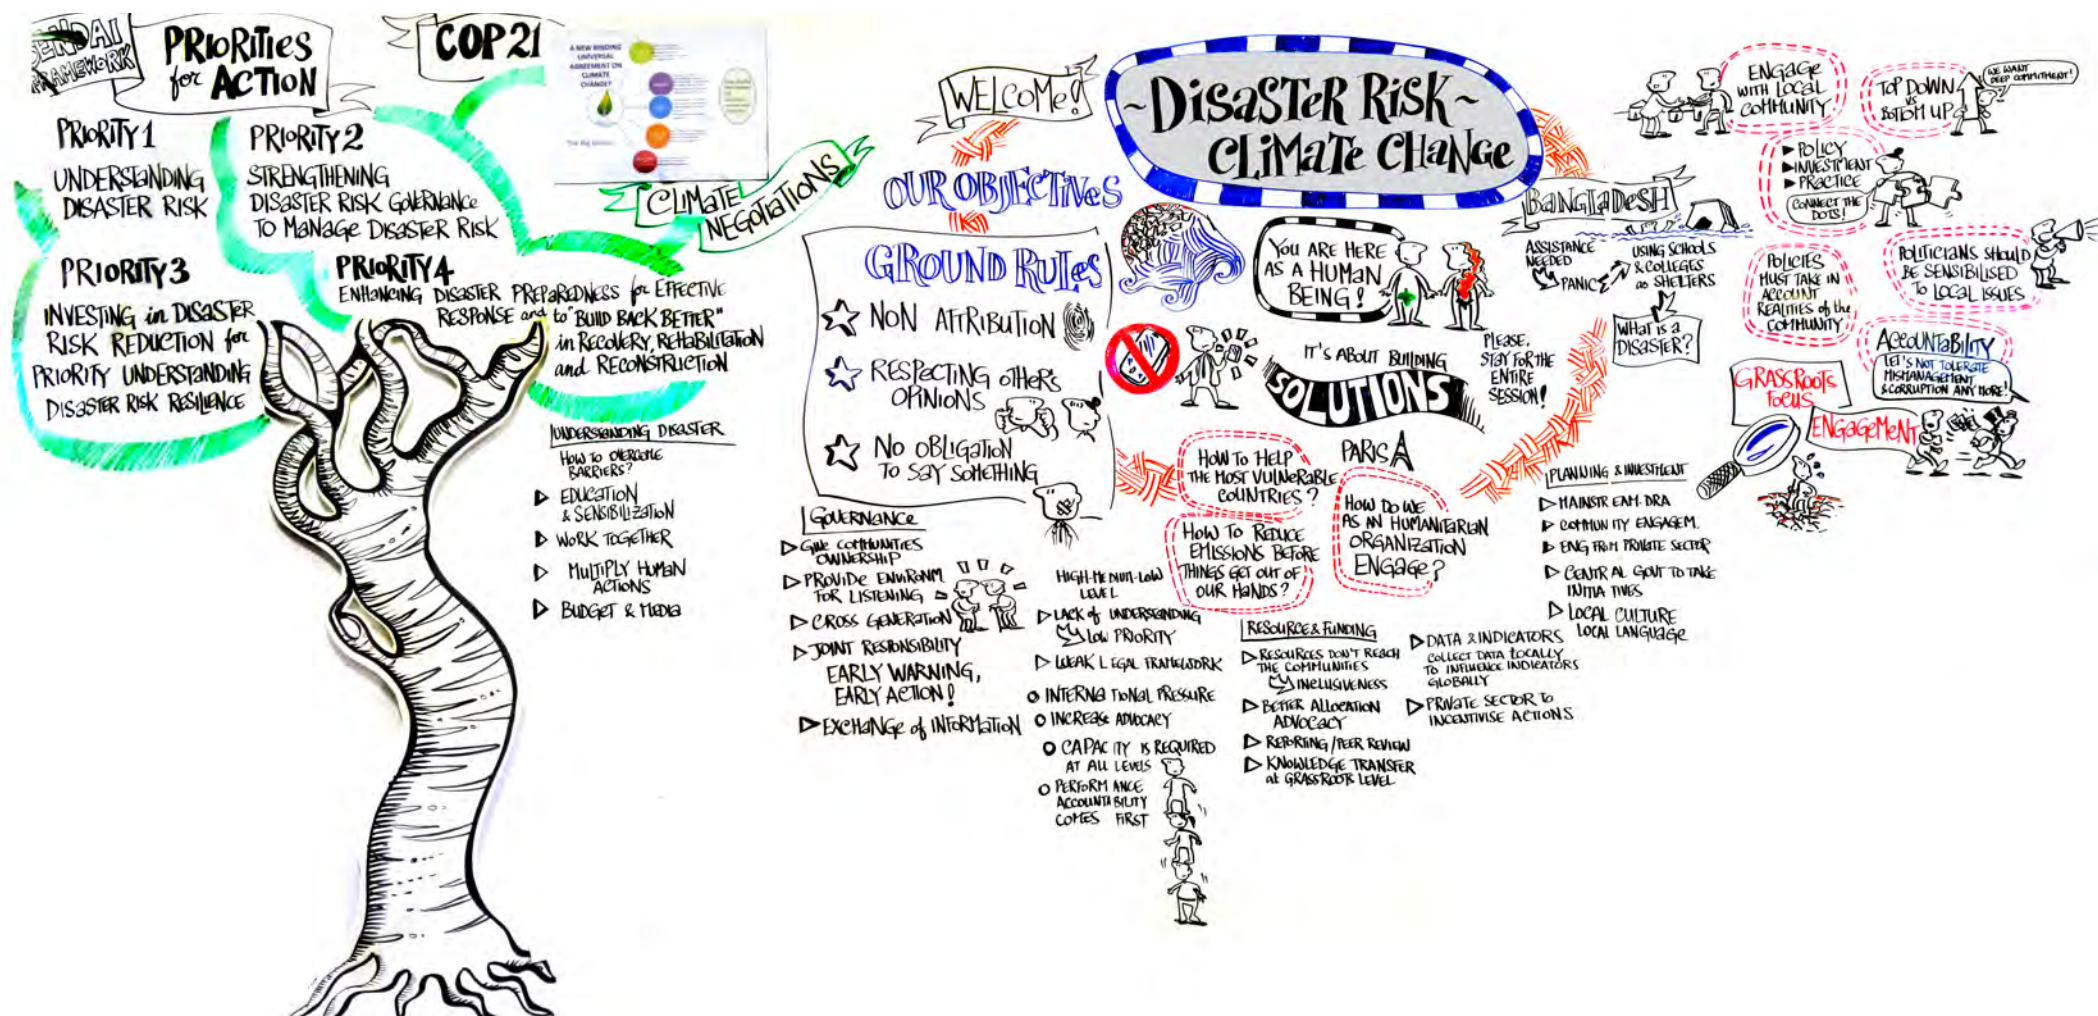 SENDAI
FRAMEWORK
PRIORITIES
for ACTION
COP21
A NEW BINDING
UNIVERSAL
AGREEMENT ON
CLIMATE
CHANGE?
CLIMATE
NEGOTIATIONS
PRIORITY 1
UNDERSTANDING
DISASTER RISK
PRIORITY 2
STRENGTHENING
DISASTER RISK GOVERNANCE
TO MANAGE DISASTER RISK
PRIORITY 3
INVESTING in DISASTER
RISK REDUCTION for
PRIORITY UNDERSTANDING
DISASTER RISK RESILIENCE
PRIORITY 4
ENHANCING DISASTER PREPAREDNESS for EFFECTIVE
RESPONSE and to "BUILD BACK BETTER"
in RECOVERY, REHABILITATION
and RECONSTRUCTION
UNDERSTANDING DISASTER
HOW TO OVERCOME
BARRIERS?
EDUCATION
& SENSIBILIZATION
WORK TOGETHER
MULTIPLY HUMAN
ACTIONS
BUDGET & MEDIA
WELCOME!
~DISASTER RISK~
CLIMATE CHANGE
OUR OBJECTIVES
GROUND RULES
NON ATTRIBUTION
RESPECTING OTHER'S
OPINIONS
NO OBLIGATION
TO SAY SOMETHING
YOU ARE HERE
AS A HUMAN
BEING!
IT'S ABOUT BUILDING
SOLUTIONS
PLEASE,
STAY FOR THE
ENTIRE
SESSION!
PARIS
HOW TO HELP
THE MOST VULNERABLE
COUNTRIES?
HOW TO REDUCE
EMISSIONS BEFORE
THINGS GET OUT OF
OUR HANDS?
HOW DO WE
AS AN HUMANITARIAN
ORGANIZATION
ENGAGE?
GOVERNANCE
GIVE COMMUNITIES
OWNERSHIP
PROVIDE ENVIRONM.
FOR LISTENING
CROSS GENERATION
JOINT RESPONSIBILITY
EARLY WARNING,
EARLY ACTION!
EXCHANGE of INFORMATION
HIGH-MEDIUM-LOW
LEVEL
LACK of UNDERSTANDING
LOW PRIORITY
WEAK LEGAL FRAMEWORK
INTERNATIONAL PRESSURE
INCREASE ADVOCACY
CAPACITY IS REQUIRED
AT ALL LEVELS
PERFORMANCE
ACCOUNTABILITY
COMES FIRST
RESOURCE & FUNDING
RESOURCES DON'T REACH
THE COMMUNITIES
INCLUSIVENESS
BETTER ALLOCATION
ADVOCACY
REPORTING / PEER REVIEW
KNOWLEDGE TRANSFER
at GRASSROOTS LEVEL
DATA & INDICATORS
COLLECT DATA LOCALLY
TO INFLUENCE INDICATORS
GLOBALLY
PRIVATE SECTOR TO
INCENTIVISE ACTIONS
BANGLADESH
ASSISTANCE
NEEDED
PANIC
USING SCHOOLS
& COLLEGES
as SHELTERS
WHAT IS A
DISASTER?
PLANNING & INVESTMENT
MAINSTREAM DRA
COMMUNITY ENGAGEM.
ENG FROM PRIVATE SECTOR
CENTRAL GOVT TO TAKE
INITIATIVES
LOCAL CULTURE
LOCAL LANGUAGE
ENGAGE
WITH LOCAL
COMMUNITY
TOP DOWN
vs
BOTTOM UP
WE WANT
DEEP COMMITMENT!
POLICY
INVESTMENT
PRACTICE
CONNECT THE
DOTS!
POLICIES
MUST TAKE IN
ACCOUNT
REALITIES of the
COMMUNITY
POLITICIANS SHOULD
BE SENSIBILISED
TO LOCAL ISSUES
ACCOUNTABILITY
LET'S NOT TOLERATE
MISMANAGEMENT
& CORRUPTION ANY MORE!
GRASSROOTS
FOCUS
ENGAGEMENT